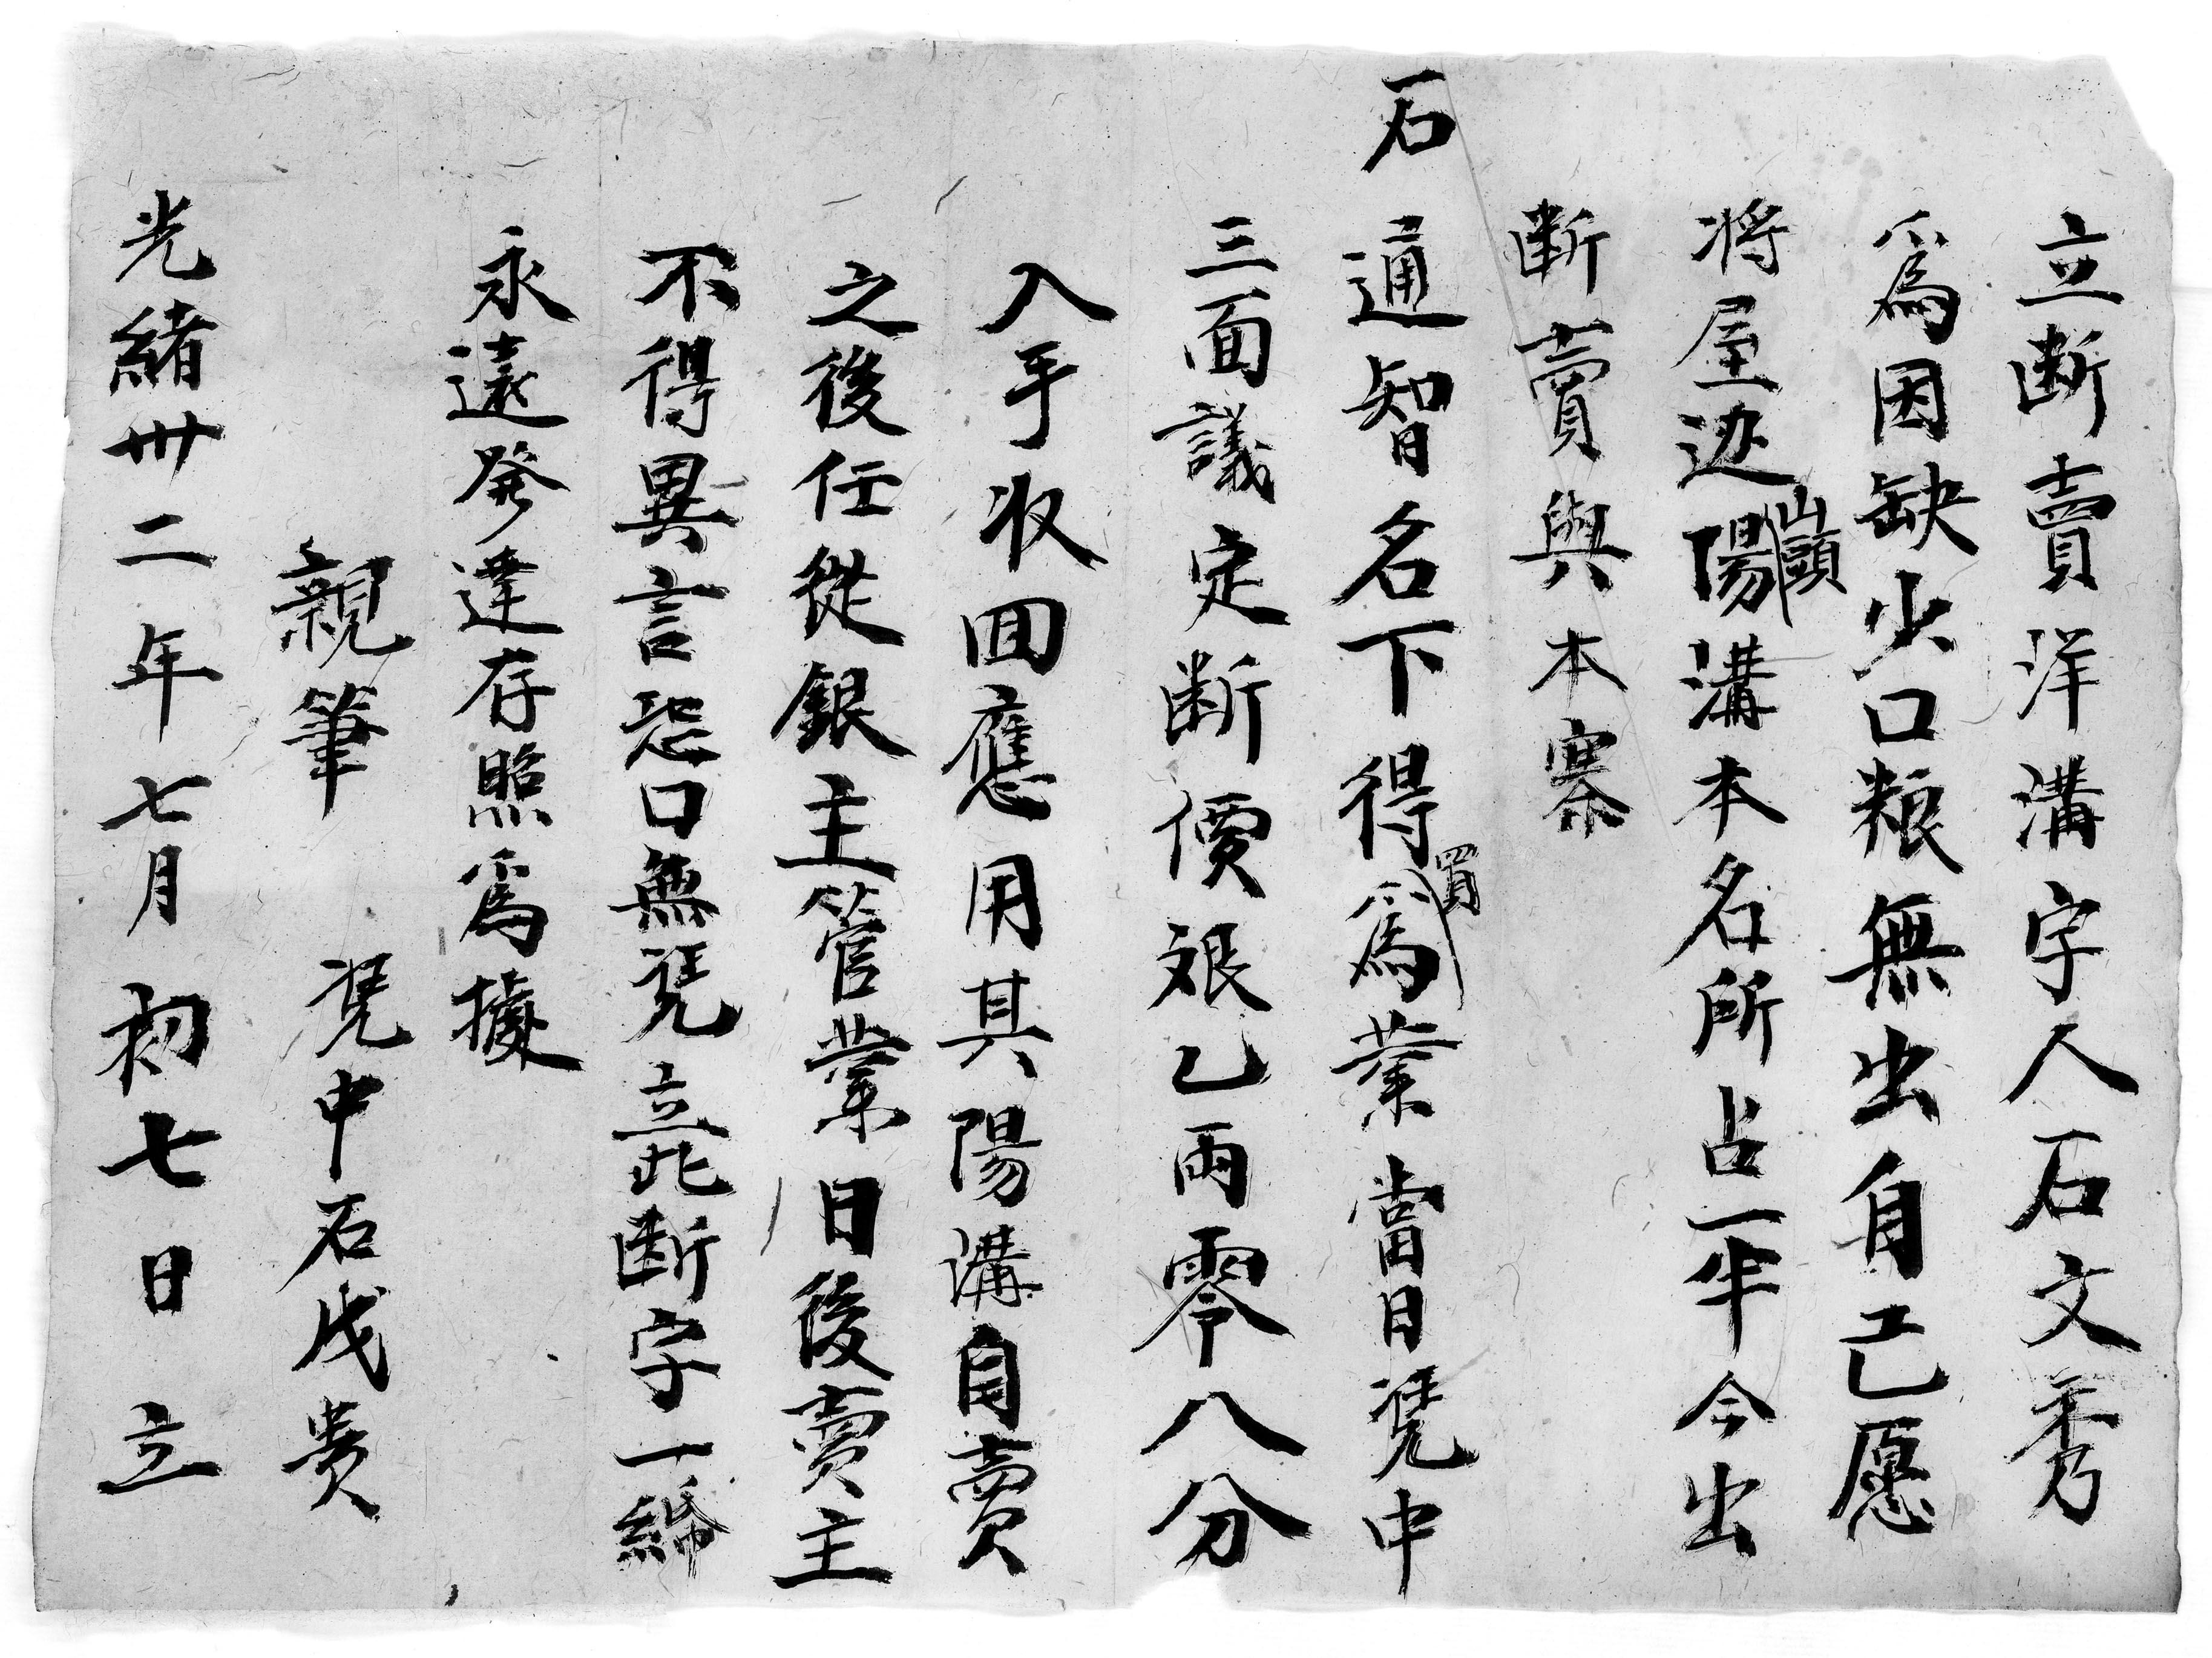 立断賣洋溝字人石文秀
爲因缺少口粮無出自己愿
將屋边山頭陽溝本名所占一半今出
断賣與本寨
石通智名下得買爲業當日凴中
三面議定断價艮乙両零八分
入手收囬應用其陽溝自賣
之後任從銀主管業日後賣主
不得異言恐口無凴立此断字一紙
永遠発達存照爲據
親筆 凴中石戊贵
光緒卅二年七月初七日立